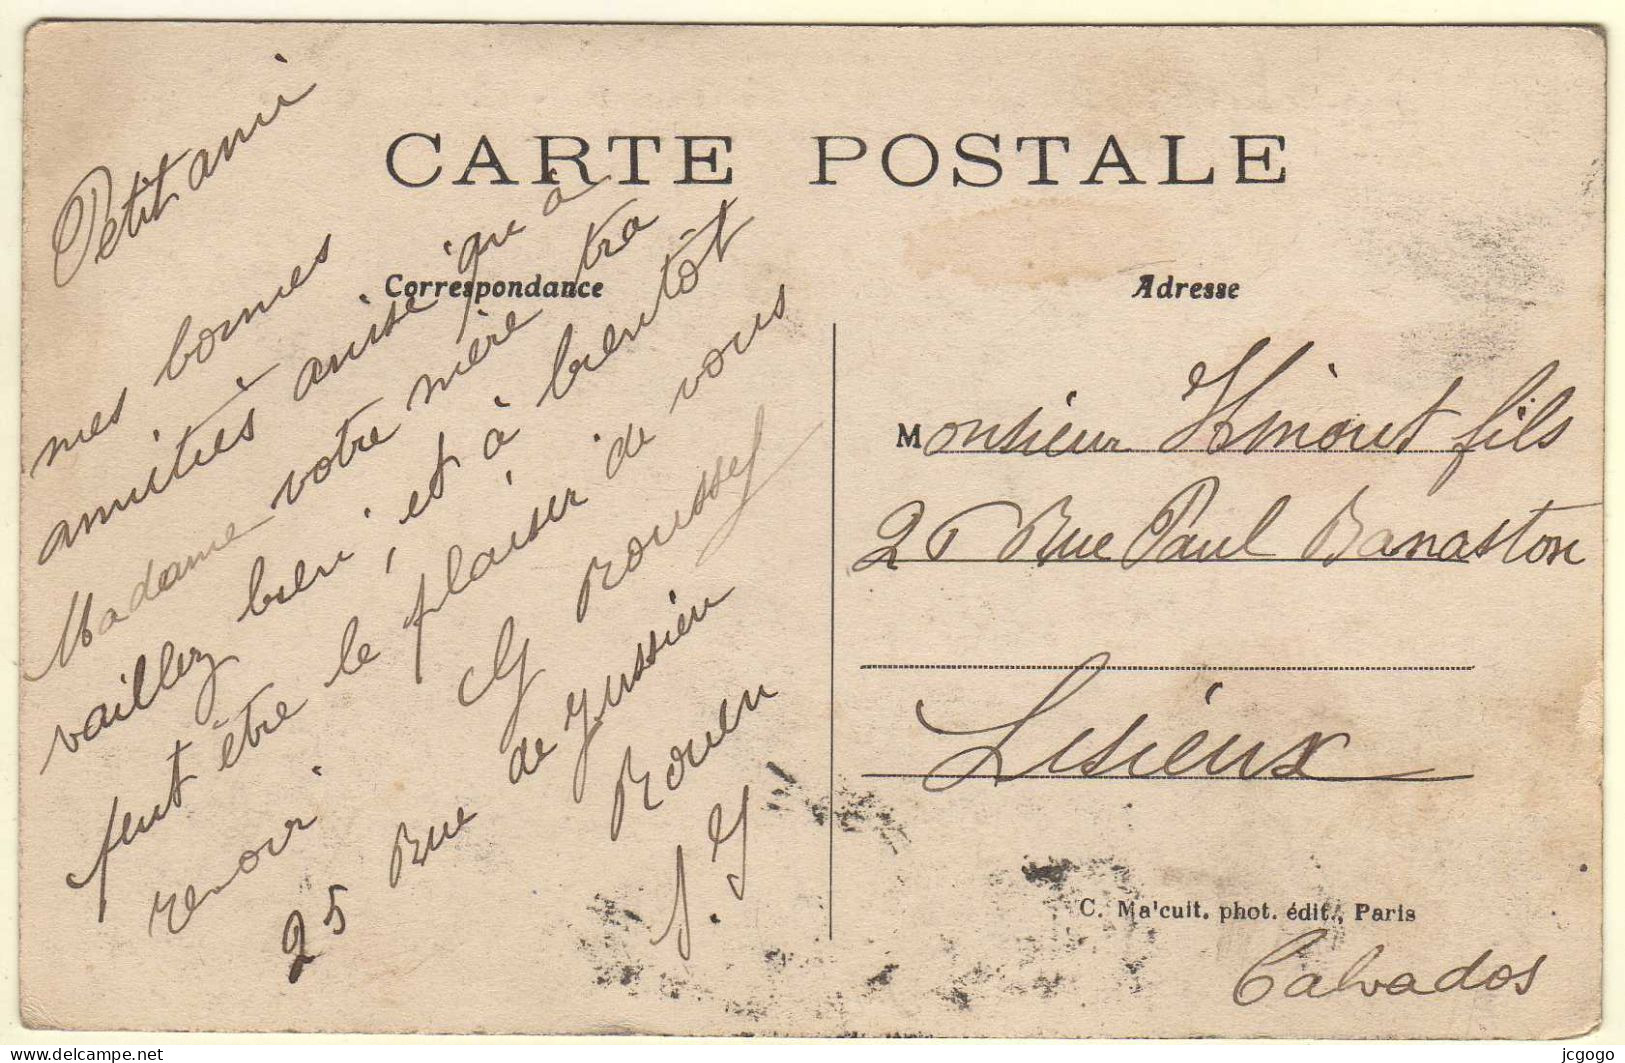 CARTE POSTALE
Correspondance
Petit ami
mes bonnes
amitiés ainsi qu à
Madame votre mère tra
vaillez bien, et à bientôt
peut être le plaisir de vous
revoir G Roussel
25 Rue de Jussieu
Rouen
S. I
Adresse
Monsieur fils
25 Rue Paul Banaston
Lisieux
C. Malcuit. phot. édit., Paris
Calvados
jcgogo
delcampe.net